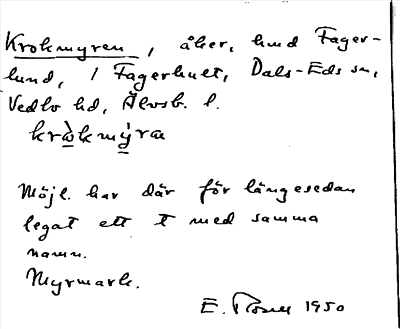 Krokmyren, åker, hmd Fager-
lund, / Fagerhult, Dals-Eds sn,
Vedbo hd, Älvsb. l.
kròkmýra
Möjl. har där för längesedan
legat ett t med samma
namn.
Myrmark.
E. 1950